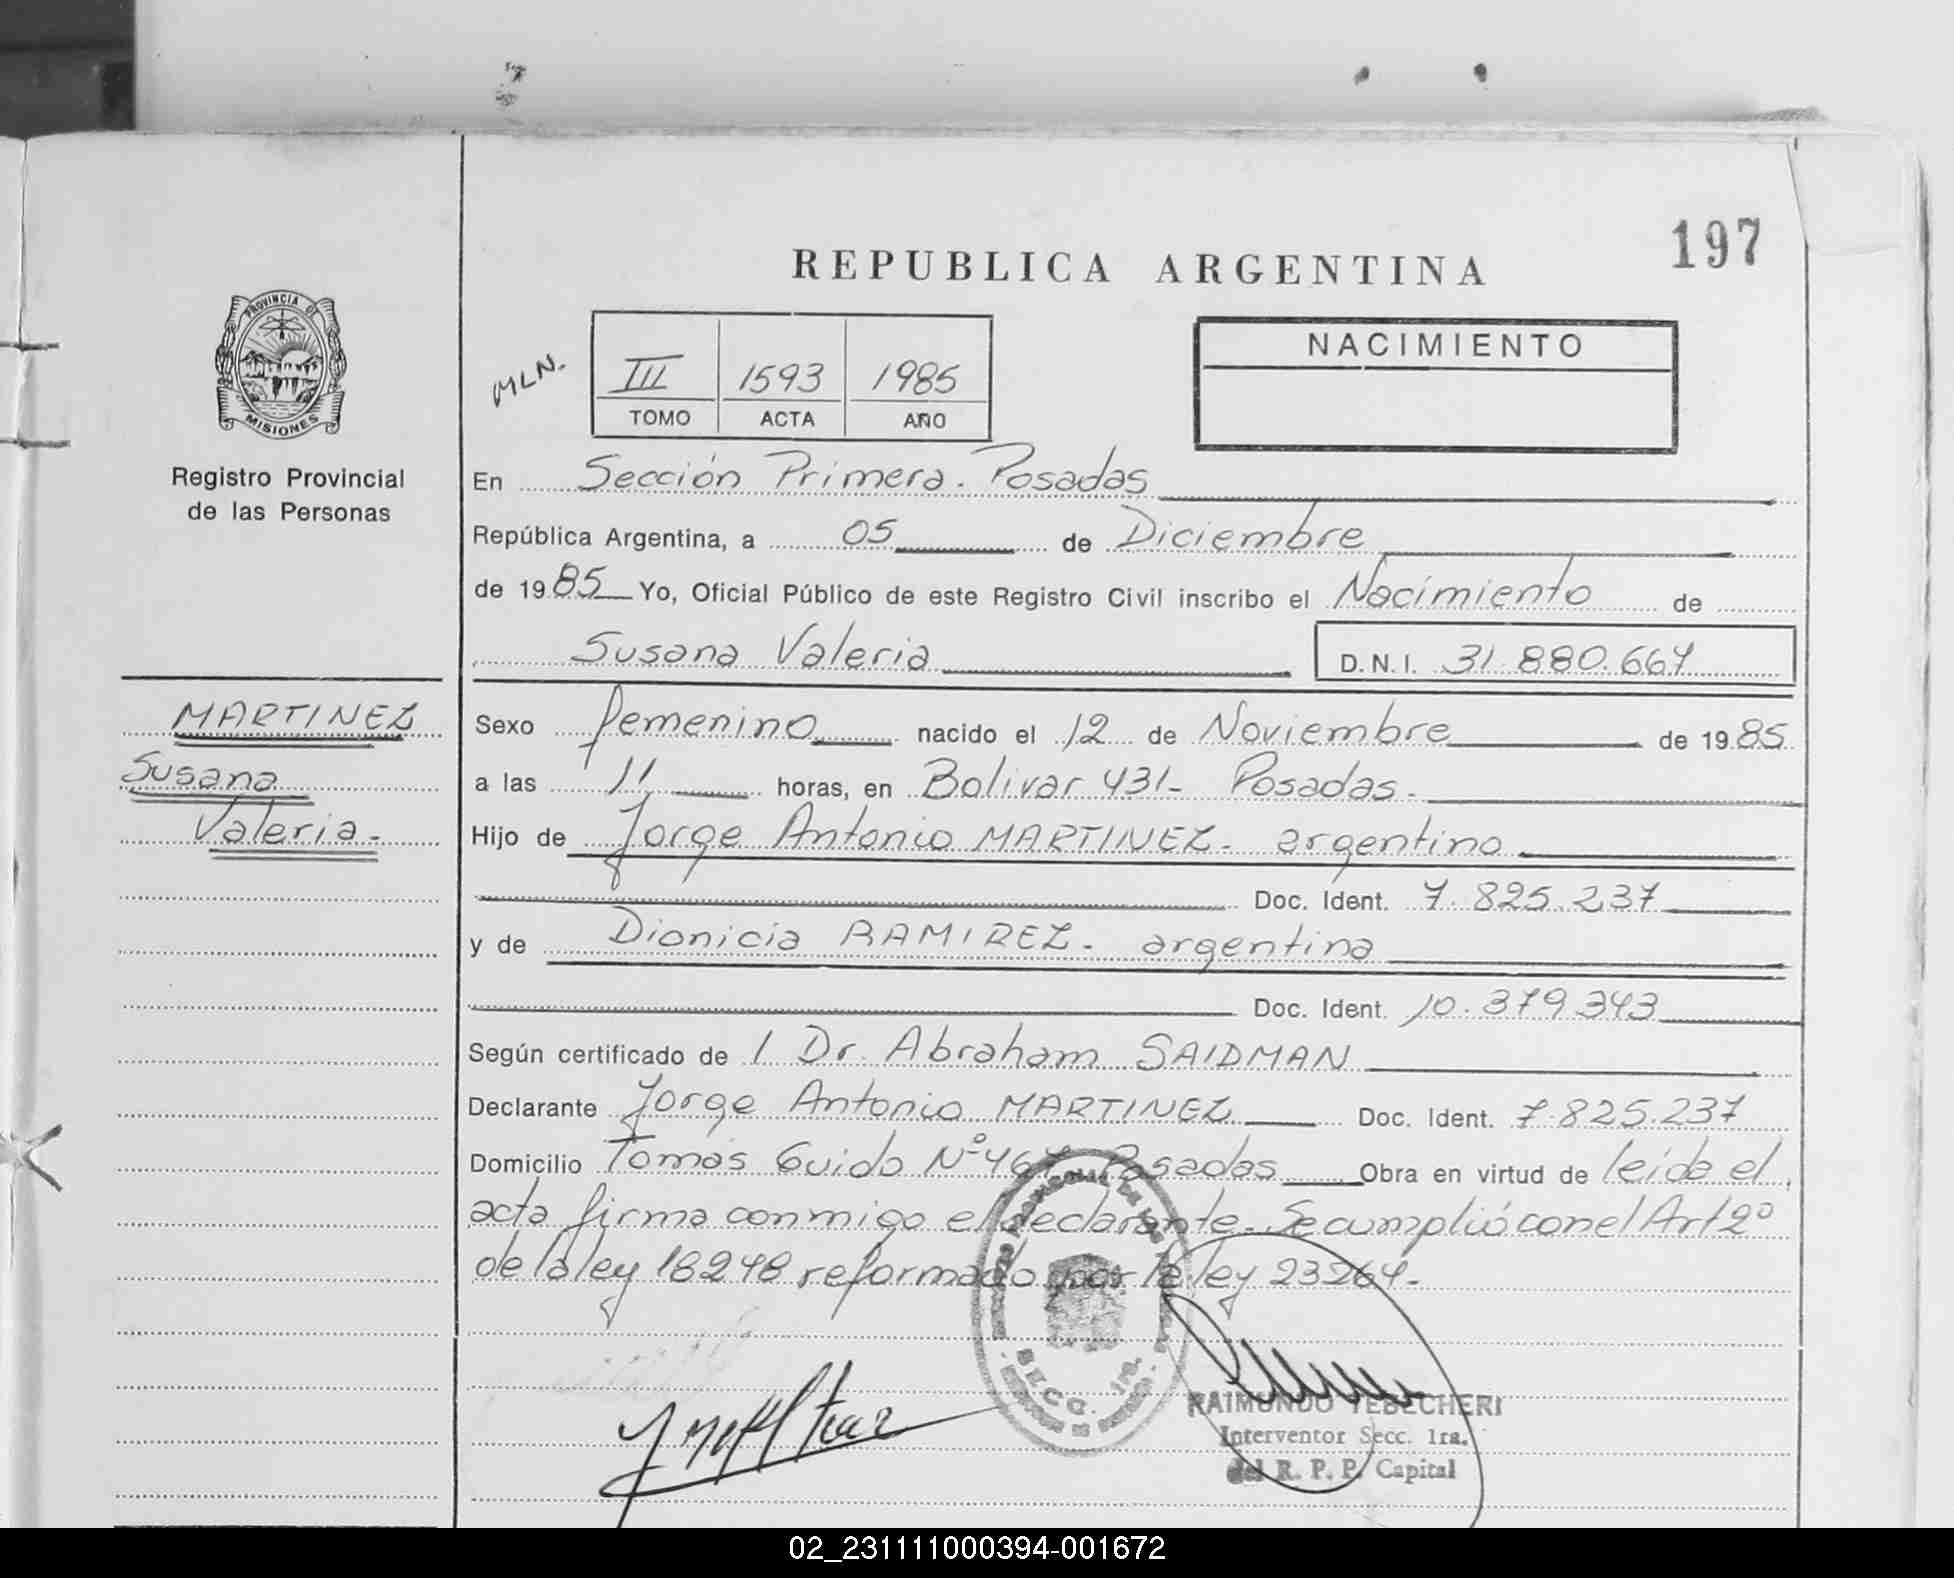 197
REPUBLICA ARGENTINA
PROVINCIA DE
MISIONES
Registro Provincial
de las Personas
MLN.
III 1593 1985
TOMO ACTA AÑO
NACIMIENTO
En Sección Primera. Posadas
República Argentina, a 05 de Diciembre
de 1985 Yo, Oficial Público de este Registro Civil inscribo el Nacimiento de
Susana Valeria D.N.I. 31.880.667
MARTINEZ
Susana
Valeria.-
Sexo femenino nacido el 12 de Noviembre de 1985
a las 11 horas, en Bolivar 431- Posadas.
Hijo de Jorge Antonio MARTINEZ- argentino
Doc. Ident. 7.825.237
y de Dionicia RAMIREZ- argentina
Doc. Ident. 10.379.343
Según certificado de 1 Dr. Abraham SAIDMAN
Declarante Jorge Antonio MARTINEZ Doc. Ident. 7.825.237
Domicilio Tomás Guido Nº Posadas Obra en virtud de leida el
acta firma conmigo el declarante. Se cumplió con el Art 2º
de la ley 18248 reformado por la ley 23264-
RAIMUNDO TEBECHERI
Interventor Secc. 1ra.
del R. P. P. Capital
02_231111000394-001672